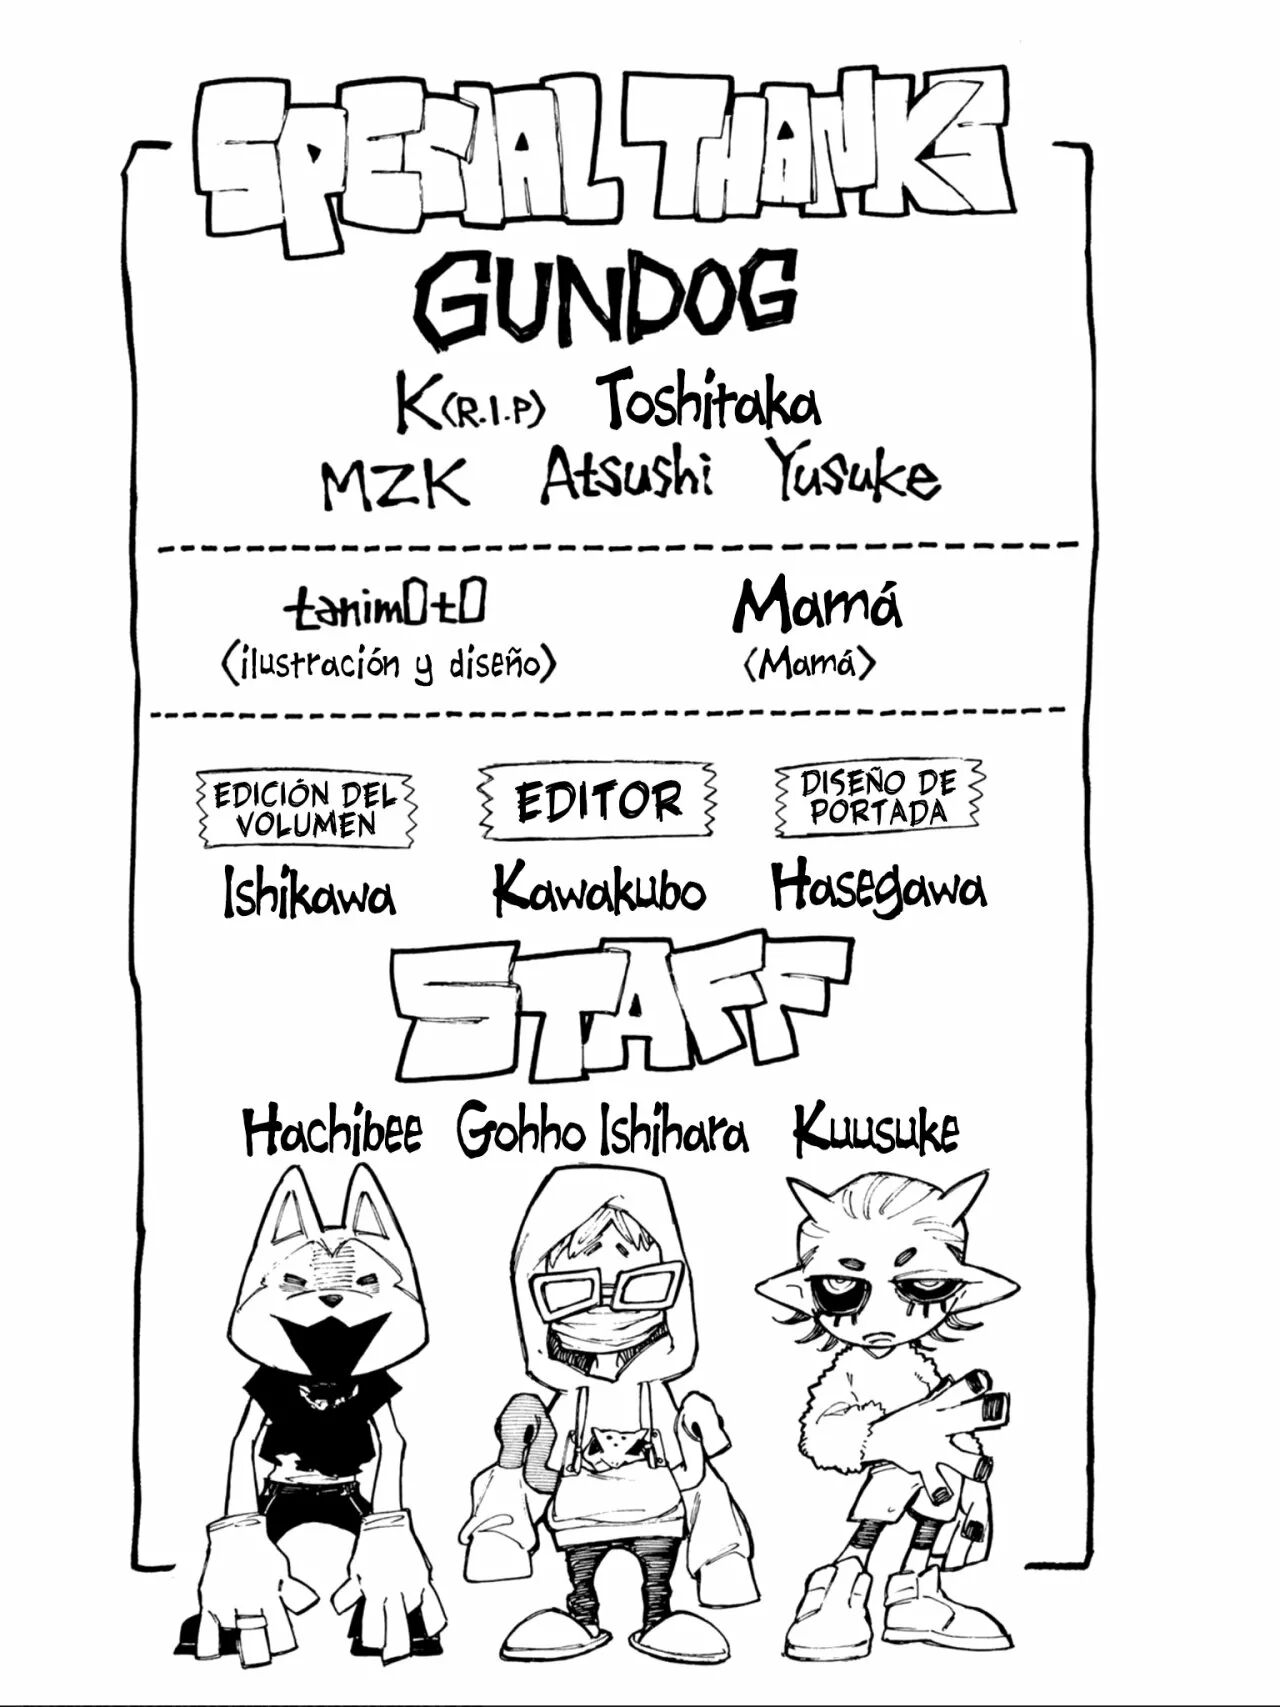 SPECIAL THANKS
GUNDOG
K(R.I.P) Toshitaka
MZK Atsushi Yusuke
tanim0t0 Mamá
(ilustración y diseño) (Mamá)
EDICIÓN DEL
VOLUMEN
Ishikawa
EDITOR
Kawakubo
DISEÑO DE
PORTADA
Hasegawa
STAFF
Hachibee Gohho Ishihara Kuusuke